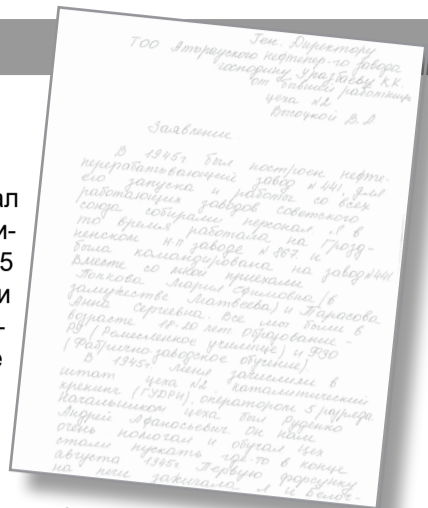 Ген. Директору
ТОО Атырауского нефтепер-го завода
господину Уразбаеву К.К.
от бывшей работницы
цеха №2
Высоцкой В.А
Заявление
В 1945г был построен нефте-
перерабатывающий завод №441, для
его запуска и работы со всех
работающих заводов советского
союза собирали персонал. Я в
то время работала на Грозд-
ненском н.п заводе №867 и
была командирована на завод №441
Вместе со мной приехали
Попкова Мария Ефимовна (в
замужестве Матвеева) и Тарасова
Анна Сергеевна. Все мы были в
возрасте 18-20 лет. Образование -
РУ (Ремесленное училище) и ФЗО
(Фабрично-заводское обучение)
В 1945г. меня зачислили в
штат цеха №2 каталитический
крекинг (ГУДРИ), оператором 5/разряда.
Начальником цеха был Руденко
Андрей Афанасьевич Он нам
очень помогал и обучал Цех
стали пускать где-то в конце
августа 1945г. Первую форсунку
на печи зажигала я и
ал
и-
5
и
-
е